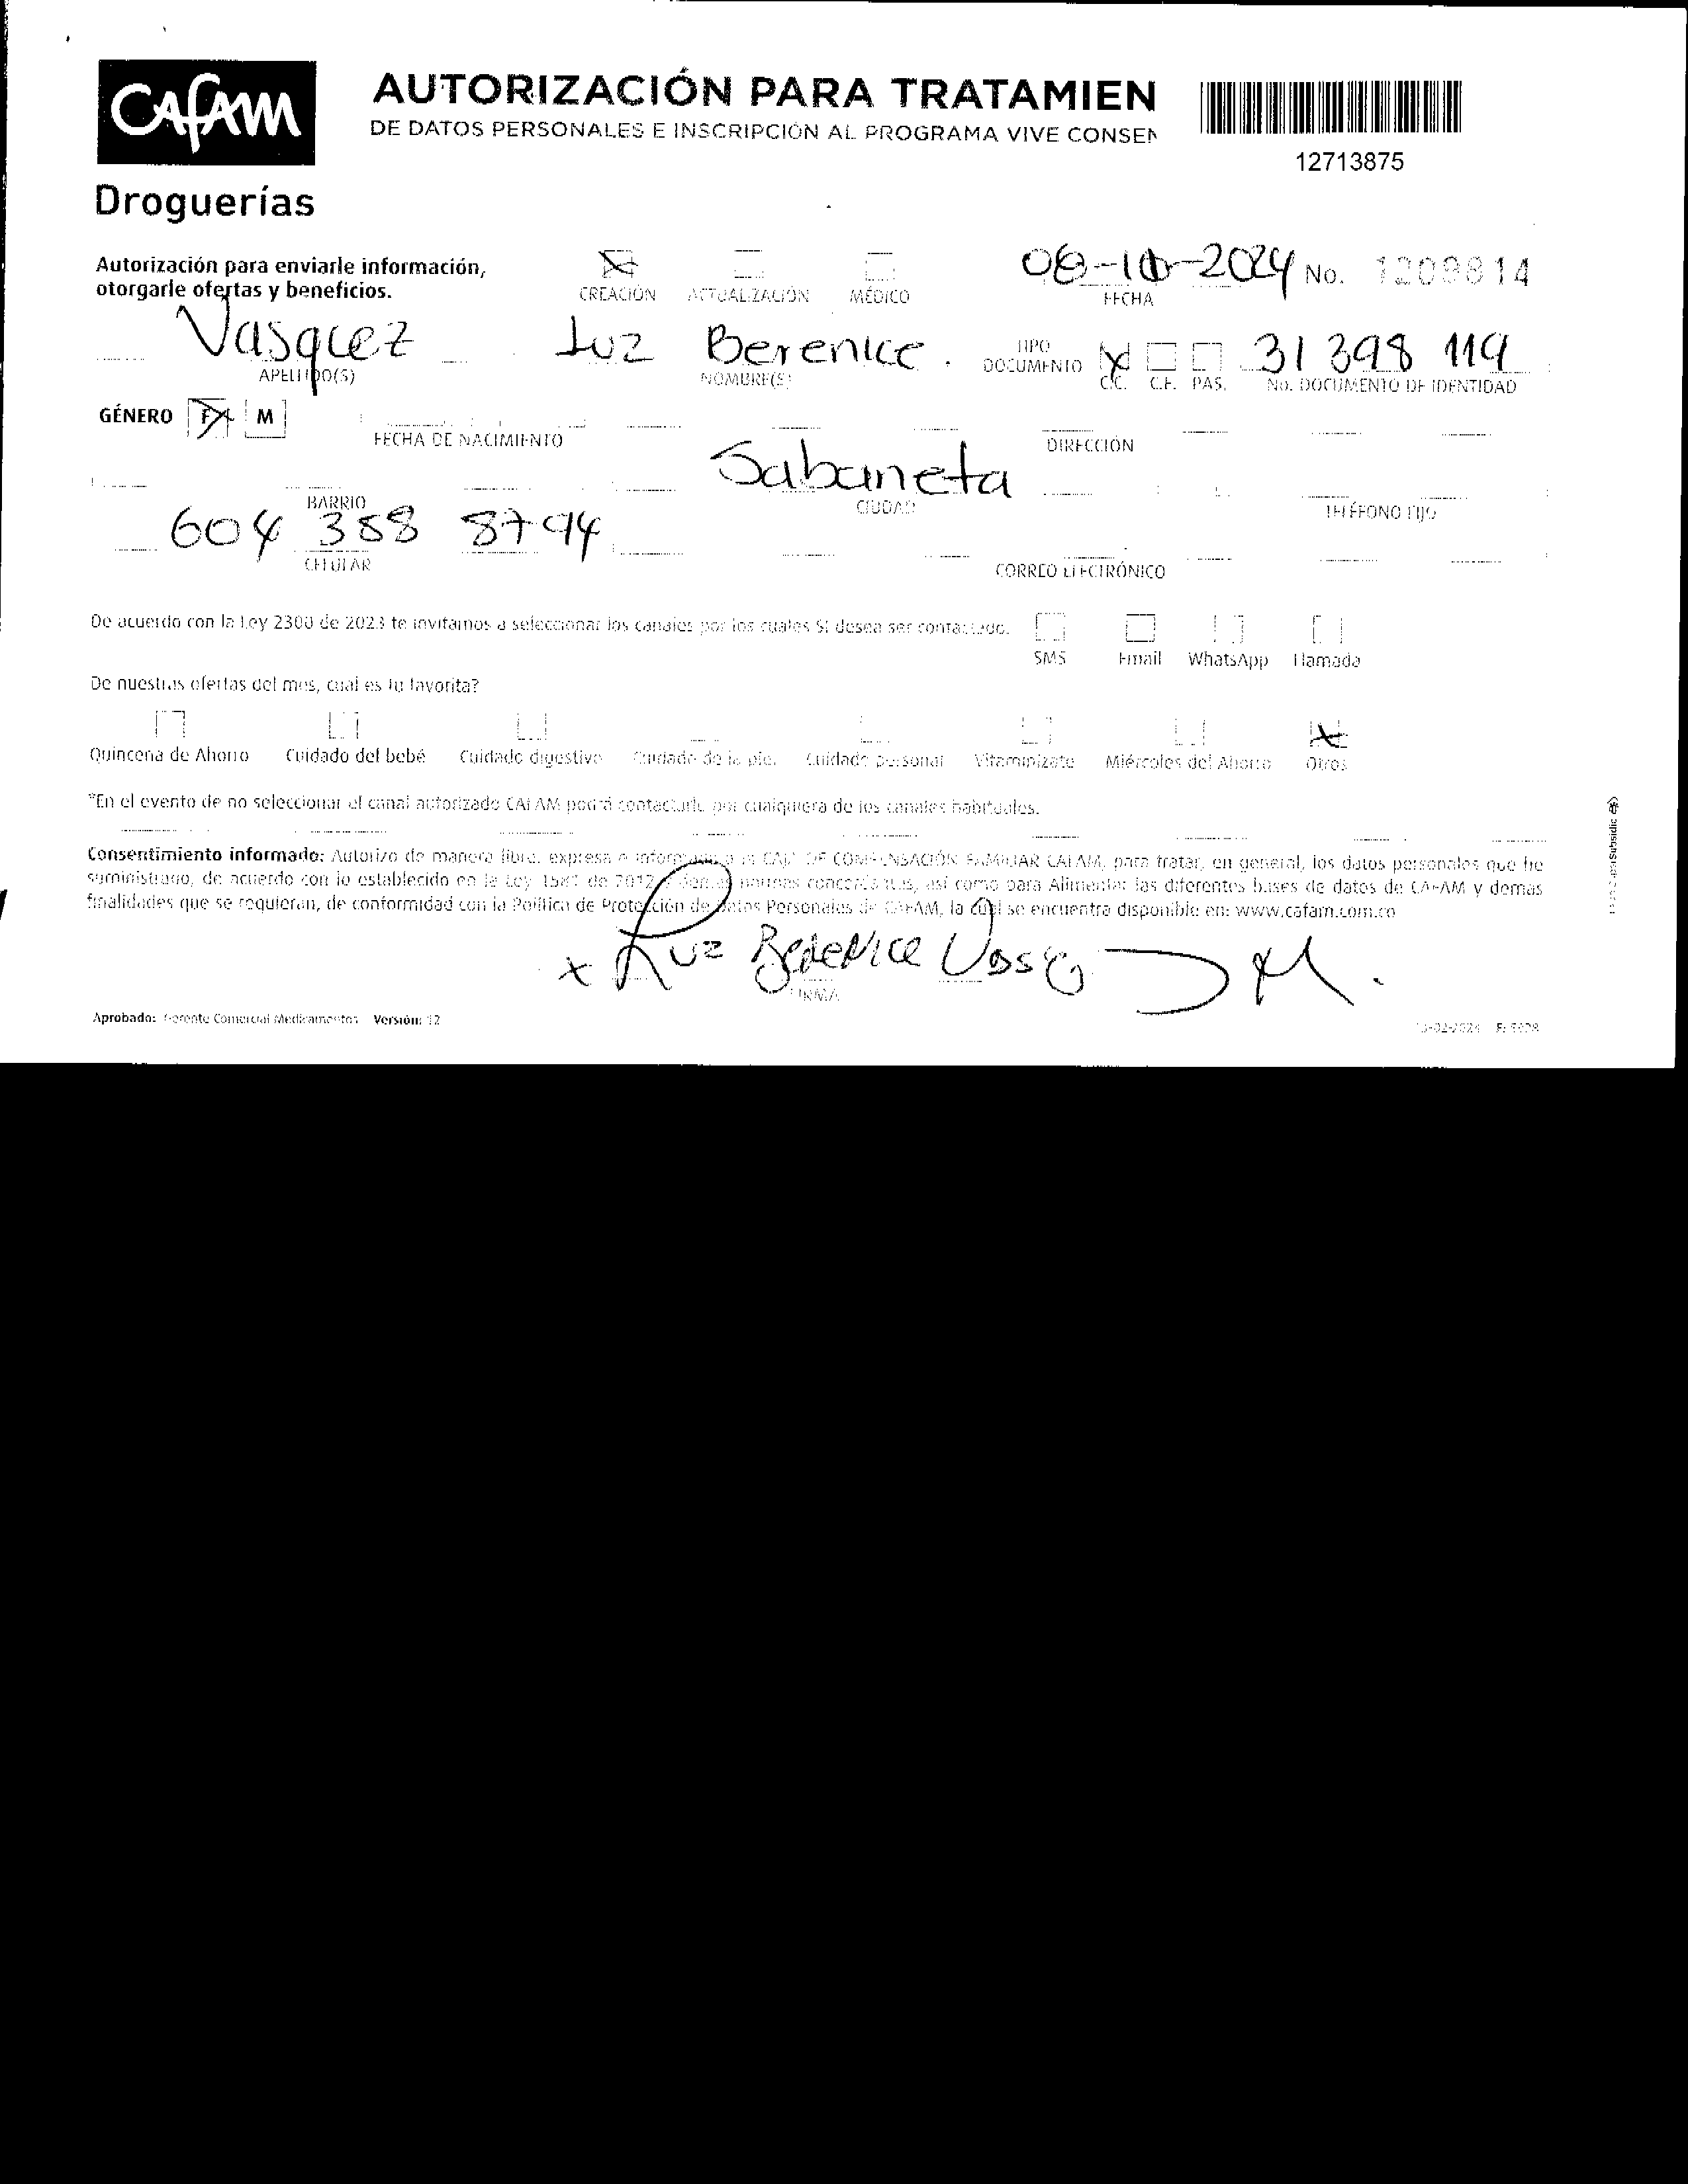 CAFAM
AUTORIZACIÓN PARA TRATAMIEN
DE DATOS PERSONALES E INSCRIPCIÓN AL PROGRAMA VIVE CONSEN
12713875
Droguerías
Autorización para enviarle información,
otorgarle ofertas y beneficios.
CREACIÓN ACTUALIZACIÓN MÉDICO
-10-2024 No. 1209814
FECHA
Vasquez Luz Berenice. TIPO DOCUMENTO X 31 398 119
APELLIDO(S) NOMBRE(S) C.C. C.E. PAS. No. DOCUMENTO DE IDENTIDAD
GÉNERO F M
FECHA DE NACIMIENTO DIRECCIÓN
Sabaneta
BARRIO CIUDAD TELÉFONO FIJO
604 388 8794
CELULAR CORREO ELECTRÓNICO
De acuerdo con la Ley 2300 de 2023 te invitamos a seleccionar los canales por los cuales SI desea ser contactado.
SMS Email WhatsApp Llamada
De nuestras ofertas del mes, cual es tu favorita?
Quincena de Ahorro Cuidado del bebé Cuidado digestivo Cuidado de la piel Cuidado personal Vitaminízate Miércoles del Ahorro Otros
*En el evento de no seleccionar el canal autorizado CAFAM podrá contactarle por cualquiera de los canales habituales.
Consentimiento informado: Autorizo de manera libre, expresa e informada a la CAJA DE COMPENSACIÓN FAMILIAR CAFAM, para tratar, en general, los datos personales que he
suministrado, de acuerdo con lo establecido en la Ley 1581 de 2012 y demás normas concordantes, así como para Alimentar las diferentes bases de datos de CAFAM y demás
finalidades que se requieran, de conformidad con la Política de Protección de Datos Personales de CAFAM, la cual se encuentra disponible en: www.cafam.com.co
x Luz Berenice
FIRMA
Aprobado: Gerente Comercial Medicamentos Versión: 12